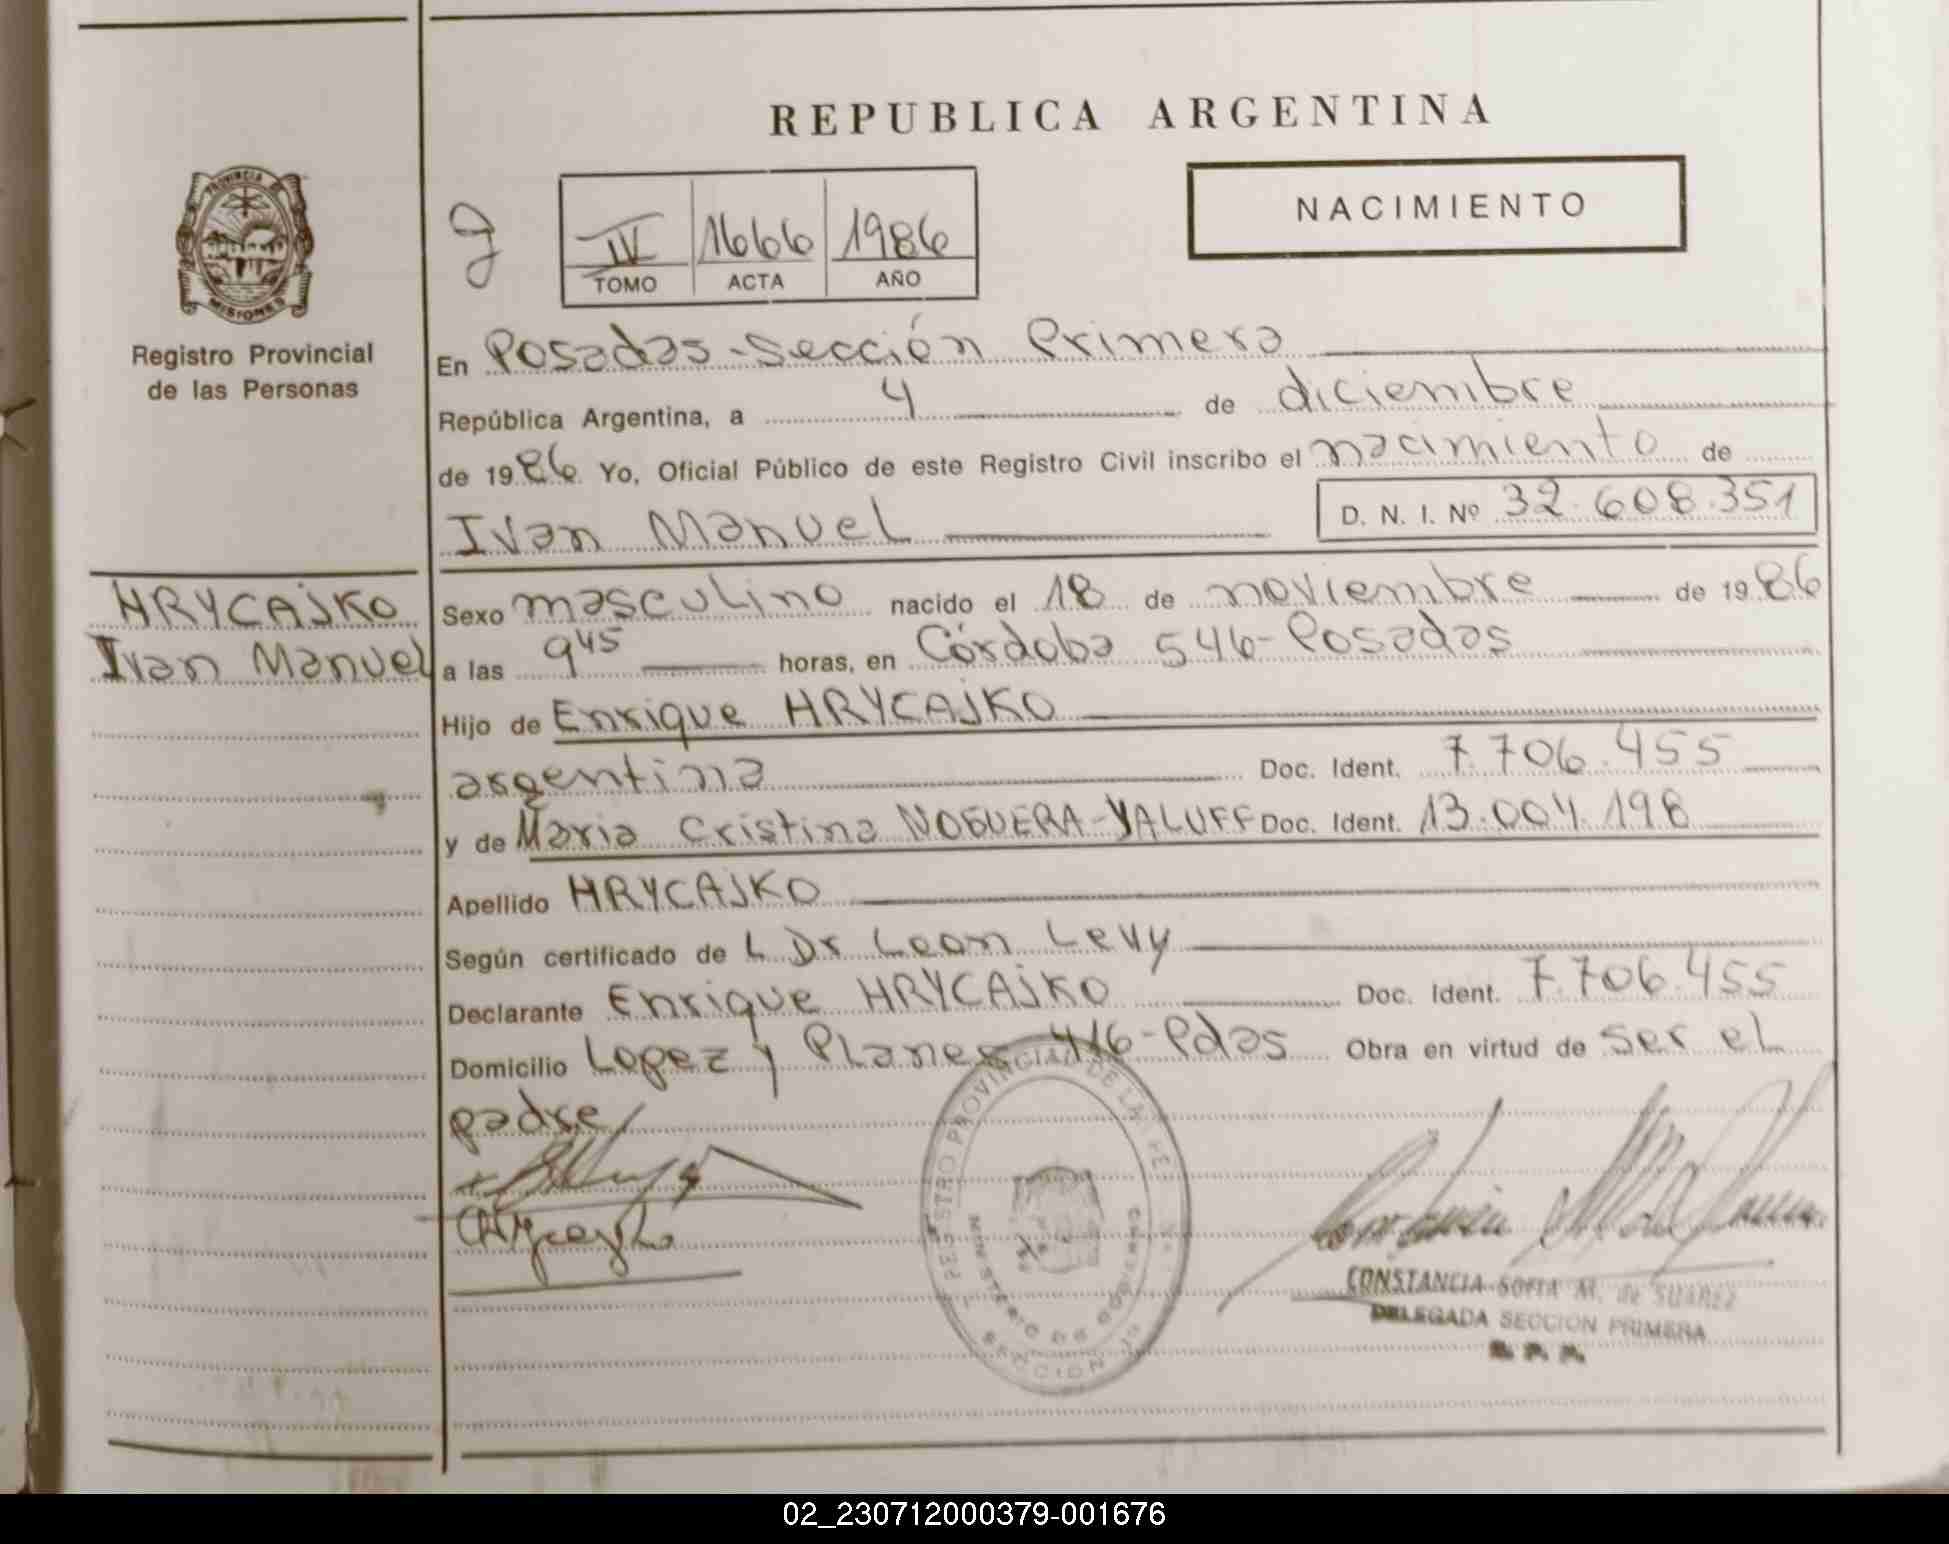 REPUBLICA ARGENTINA
NACIMIENTO
PROVINCIA DE
MISIONES
Registro Provincial
de las Personas
IV 1666 1986
TOMO ACTA AÑO
En Posadas-Sección Primera
República Argentina, a 4 de diciembre
de 1986 Yo, Oficial Público de este Registro Civil inscribo el nacimiento de
Ivan Manuel D. N. I. Nº 32.608.351
HRYCAJKO
Ivan Manuel
Sexo masculino nacido el 18 de noviembre de 1986
a las 9 45 horas, en Córdoba 546-Posadas
Hijo de Enrique HRYCAJKO
argentina Doc. Ident. 7.706.455
y de Maria Cristina NOGUERA-YALUFF Doc. Ident. 13.004.198
Apellido HRYCAJKO
Según certificado de L Dr Leon Levy
Declarante Enrique HRYCAJKO Doc. Ident. 7.706.455
Domicilio Lopez y Planes 416-Pdas Obra en virtud de ser el
padre
REGISTRO PROVINCIAL DE LAS PER
MINISTERIO DE GOBIERNO
SECCION
CONSTANCIA SOFIA M. de SUAREZ
DELEGADA SECCION PRIMERA
02_230712000379-001676